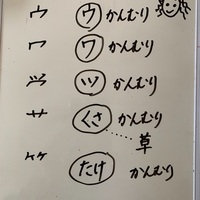 宀 ウ かんむり
冖 ワ かんむり
⺍ ツ かんむり
艹 くさ かんむり
草
⺮ たけ かんむり